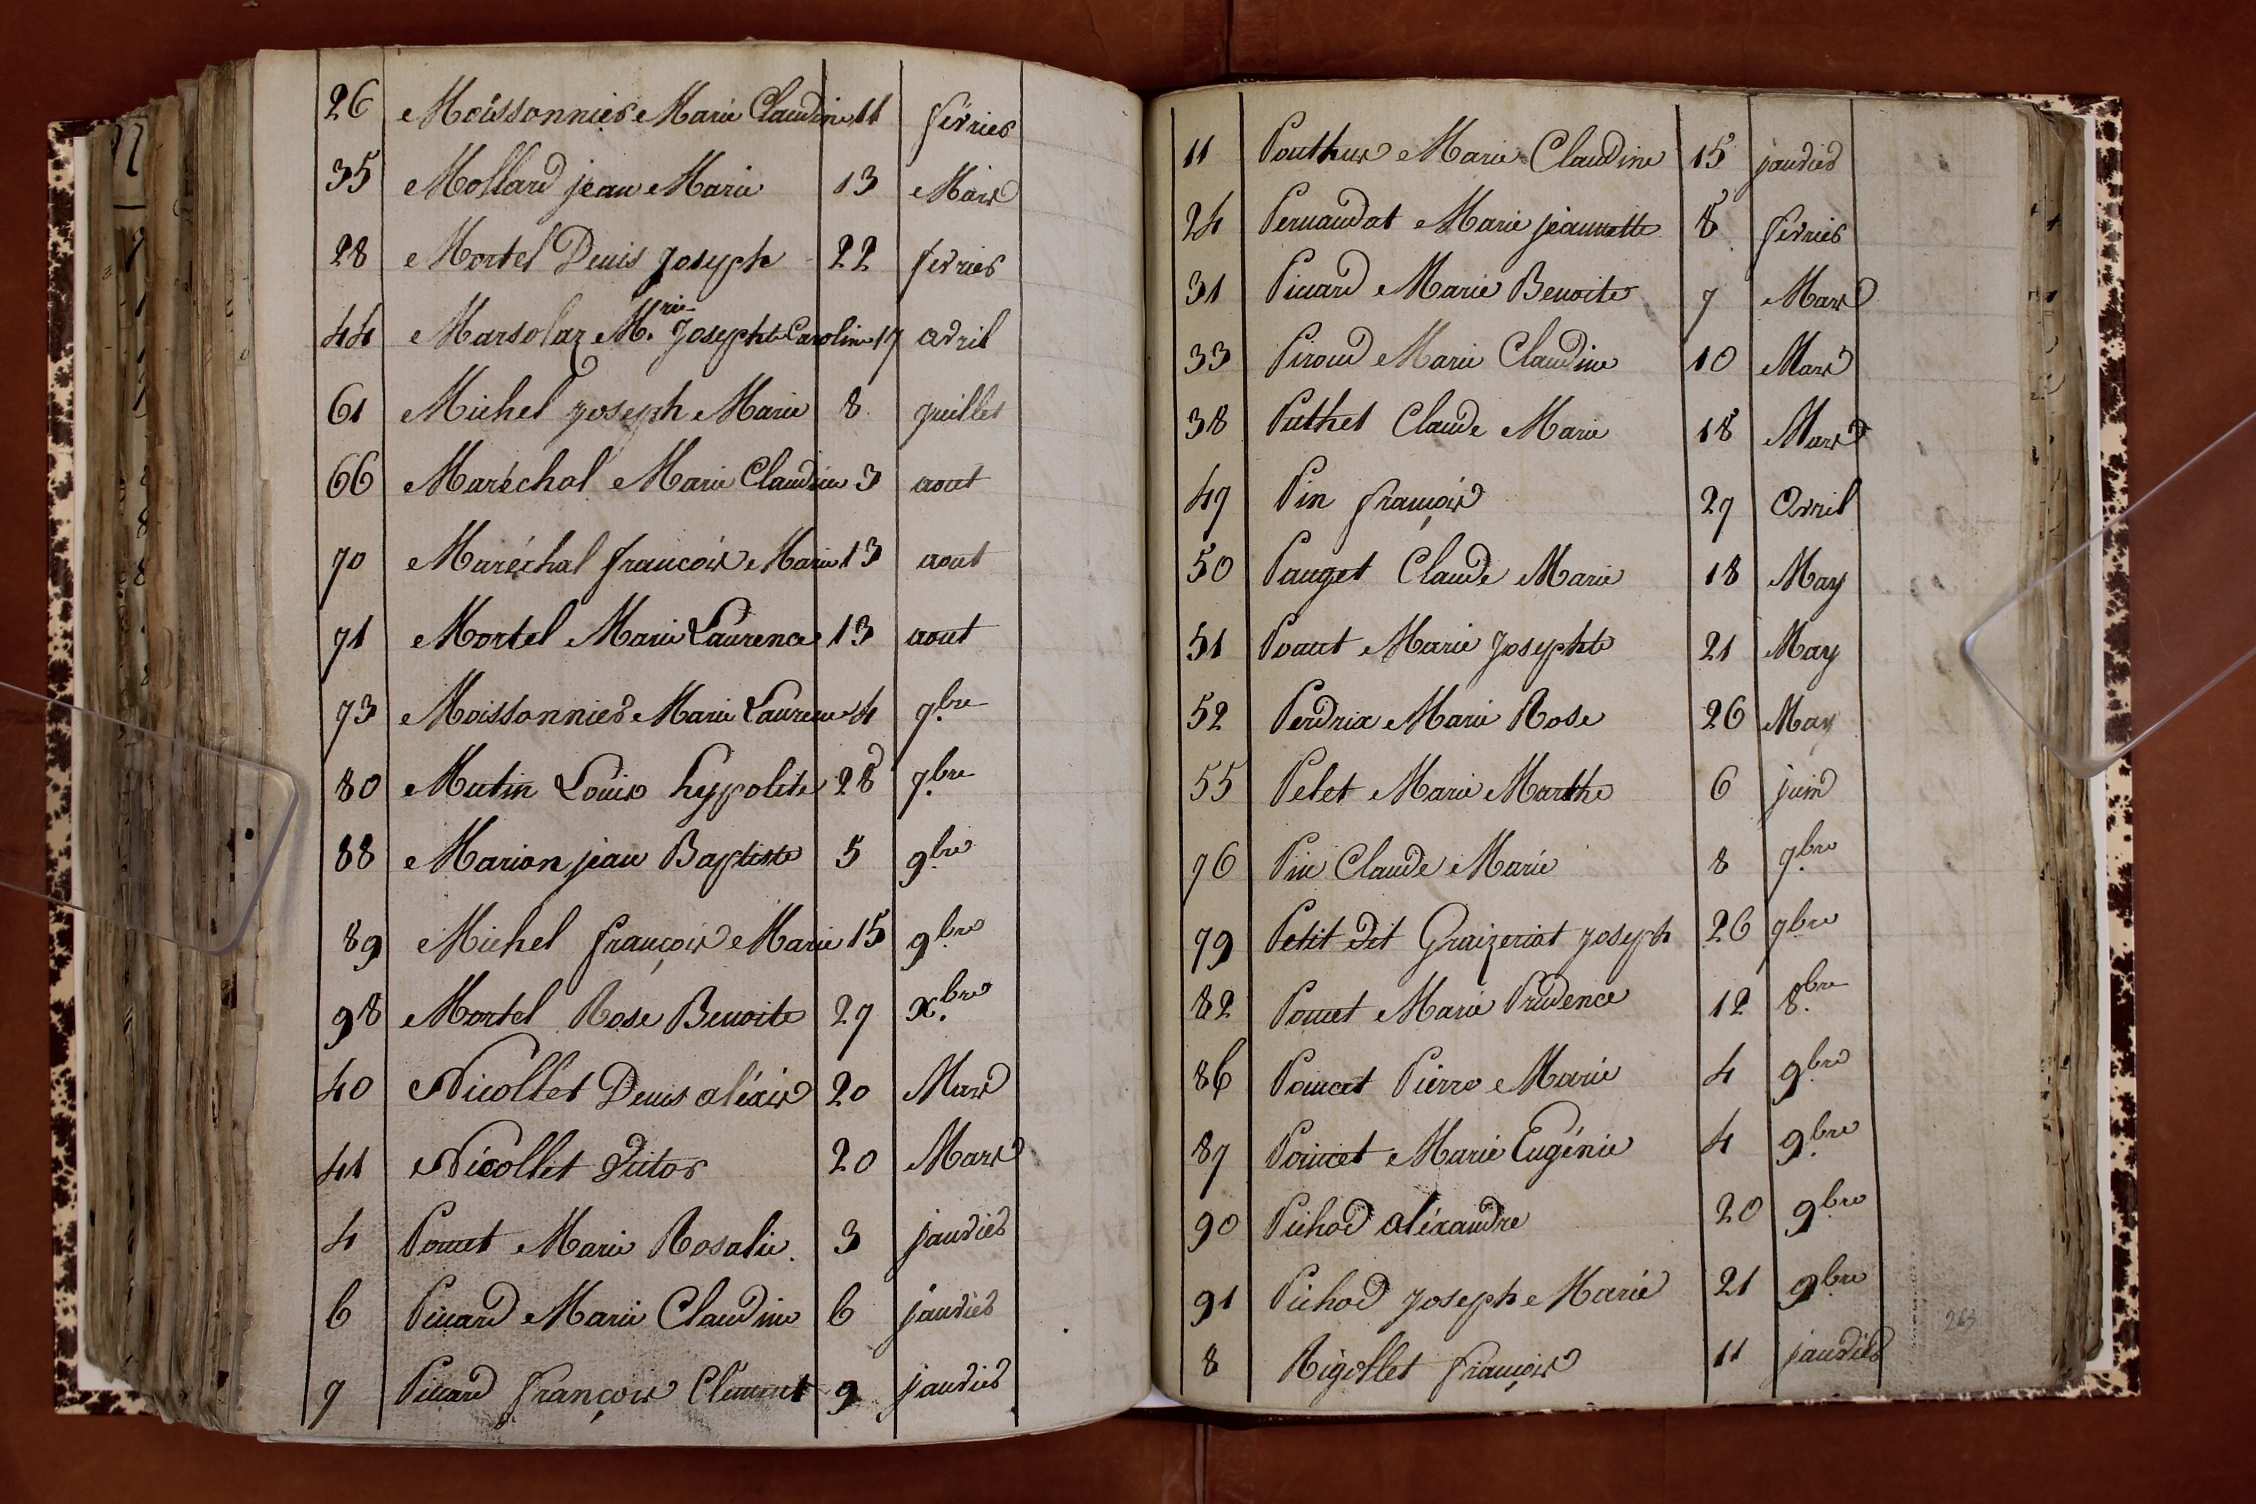 26 Moissonnier Marie Claudine 11 février
35 Mollard jean Marie 13 Mars
28 Mortel Denis joseph 22 février
44 Marsolaz M.rie Josephte Caroline 17 avril
61 Michel joseph Marie 8 juillet
66 Maréchal Marie Claudine 3 aout
70 Maréchal francois Marie 13 aout
71 Mortel Marie Laurence 13 aout
73 Moissonnier Marie Laurence 4 7.bre
80 Mutin Louis hypolite 28 7.bre
88 Marion jean Baptiste 5 9.bre
89 Michel françois Marie 15 9.bre
98 Mortel Rose Benoite 27 x.bre
40 Nicollet Denis aléxis 20 Mars
41 Nicollet Victor 20 Mars
4 Poncet Marie Rosalie 3 janvier
6 Picard Marie Claudine 6 janvier
7 Picard françois Clément 9 janvier
11 Pouthus Marie Claudine 15 janvier
24 Pernaudat Marie jeannette 8 février
31 Picard Marie Benoite 7 Mars
33 Piroud Marie Claudine 10 Mars
38 Puthet Claude Marie 18 Mars
47 Pin françois 27 Avril
50 Pauget Claude Marie 18 May
51 Poncet Marie Josephte 21 May
52 Perdrix Marie Rose 26 May
55 Pelet Marie Marthe 6 juin
76 Pin Claude Marie 8 7.bre
79 Petit dit Graizeriat joseph 26 7bre
82 Poncet Marie Prudence 12 8.bre
86 Poncet Pierre Marie 4 9.bre
87 Poncet Marie Eugénie 4 9.bre
90 Pichod aléxandre 20 9bre
91 Pichod joseph Marie 21 9bre
8 Rigollet françois 11 janvier
263